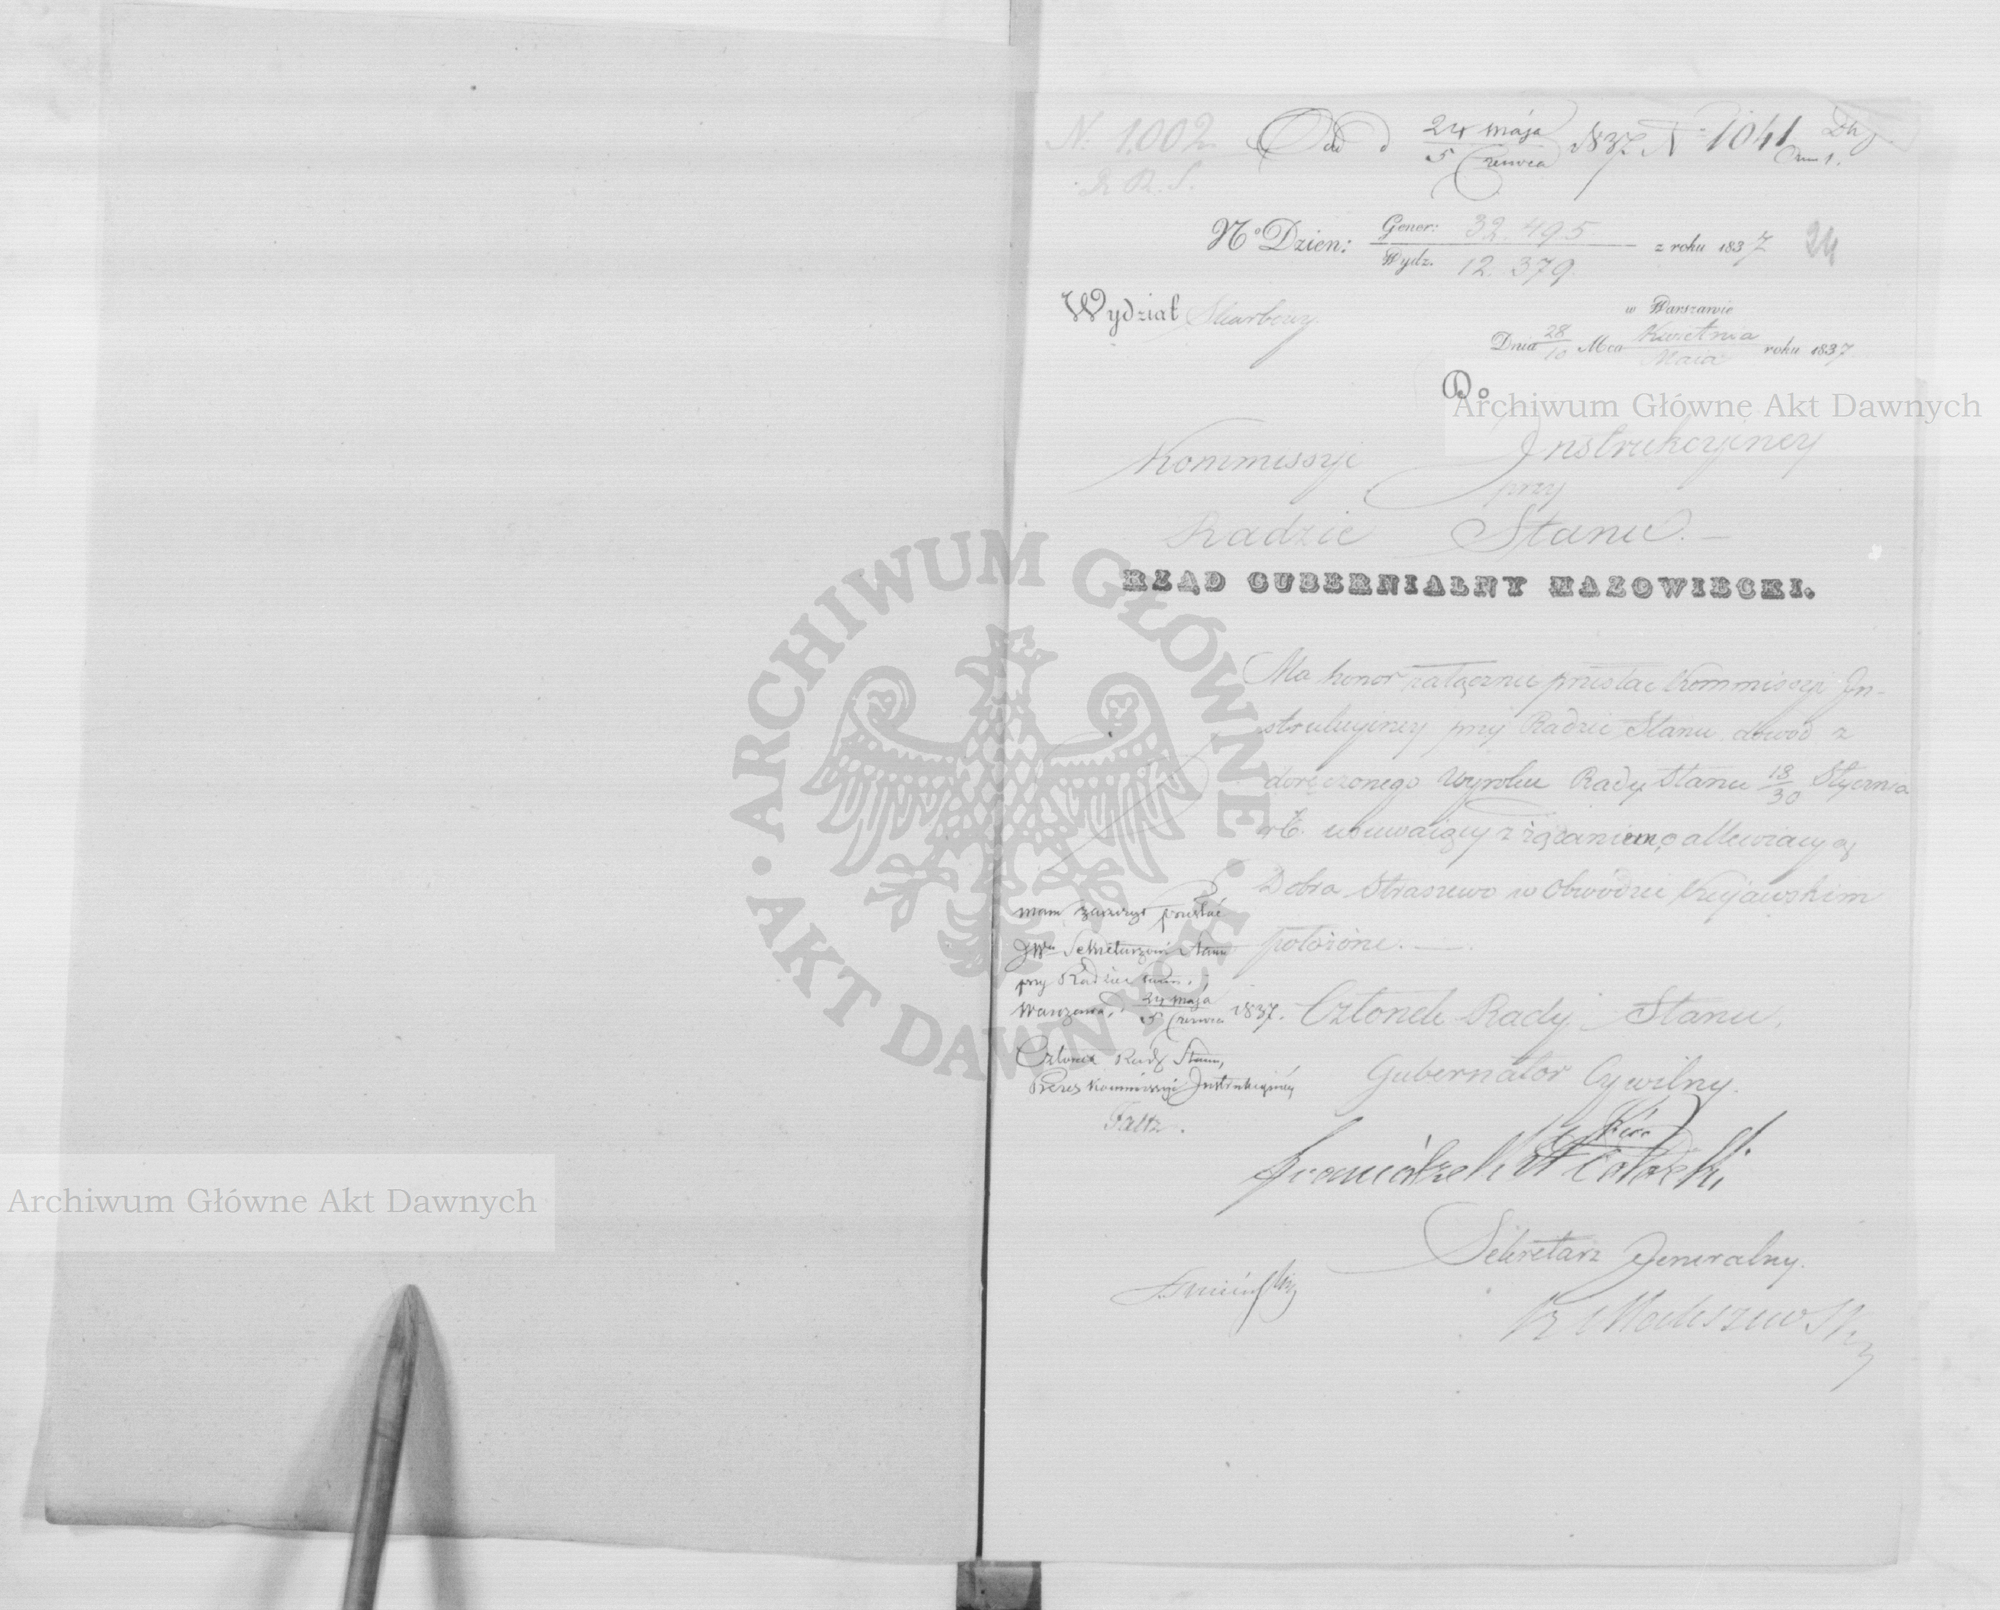 N. 1,002.
R. R. S.
Odd d 24 maja / 5 Czerwca 1837 N 1041
N° Dzien: Gener: 32.495 / Wydz. 12.379. z roku 1837
24
Wydział Skarbowy.
w Warszawie
Dnia 28/10 Mca Kwietnia / Maia roku 1837
Do
Kommissyi Instrukcyiney
przy
Radzie Stanu. —
RZĄD GUBERNIALNY MAZOWIECKI.
Ma honor załącznie przesłać Kommissyi In-
strukcyiney przy Radzie Stanu, dowód z
doręczonego Wyroku Rady Stanu 18/30 Stycznia
rb. usuwaiący z żądaniem,
Dobra Straszewo w Obwodzie Kujawskim
położone. —
mam zaszczyt przesłać
JWu Sekretarzowi Stanu
przy Radzie
Warszawa, 24 maja / 5 Czerwca 1837.
Członek Rady Stanu,
Prezes Kommissyi Instrukcyiney
Faltz.
Członek Rady Stanu,
Gubernator Cywilny.
Sekretarz Jeneralny.
Archiwum Główne Akt Dawnych
Archiwum Główne Akt Dawnych
ARCHIWUM GŁÓWNE · AKT DAWNYCH ·